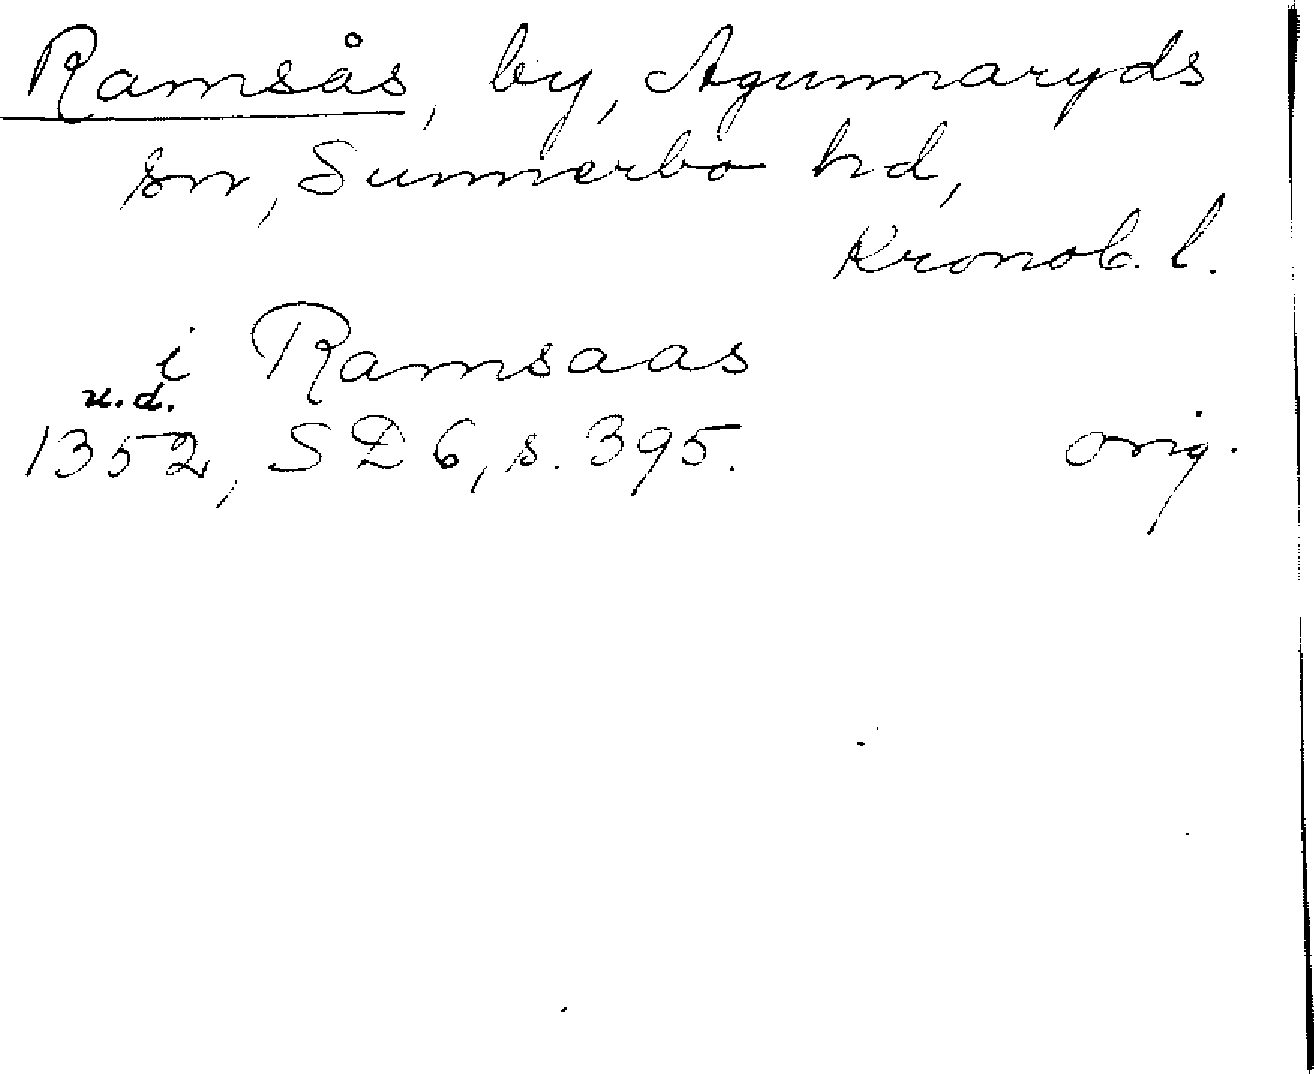 Ramsås, by, Agunnaryds
sn, Sunnerbo hd,
Kronob. l.
i Ramsaas
u.d.
1352, SD 6, s. 395. orig.